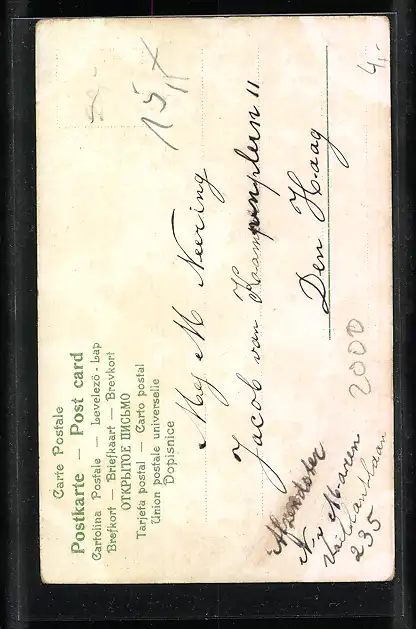 Carte Postale
Postkarte — Post card
Cartolina Postale — Levelező-Lap
Brefkort — Briefkaart — Brevkort
ОТКРЫТОЕ ПИСЬМО
Tarjeta postal — Carto postal
Union postale universelle
Dopisnice
15,-
4,-
Mej M Neering
Jacob van
11
Den Haag
2000
Afzendster
N. v Maren
Vaillantlaan
235